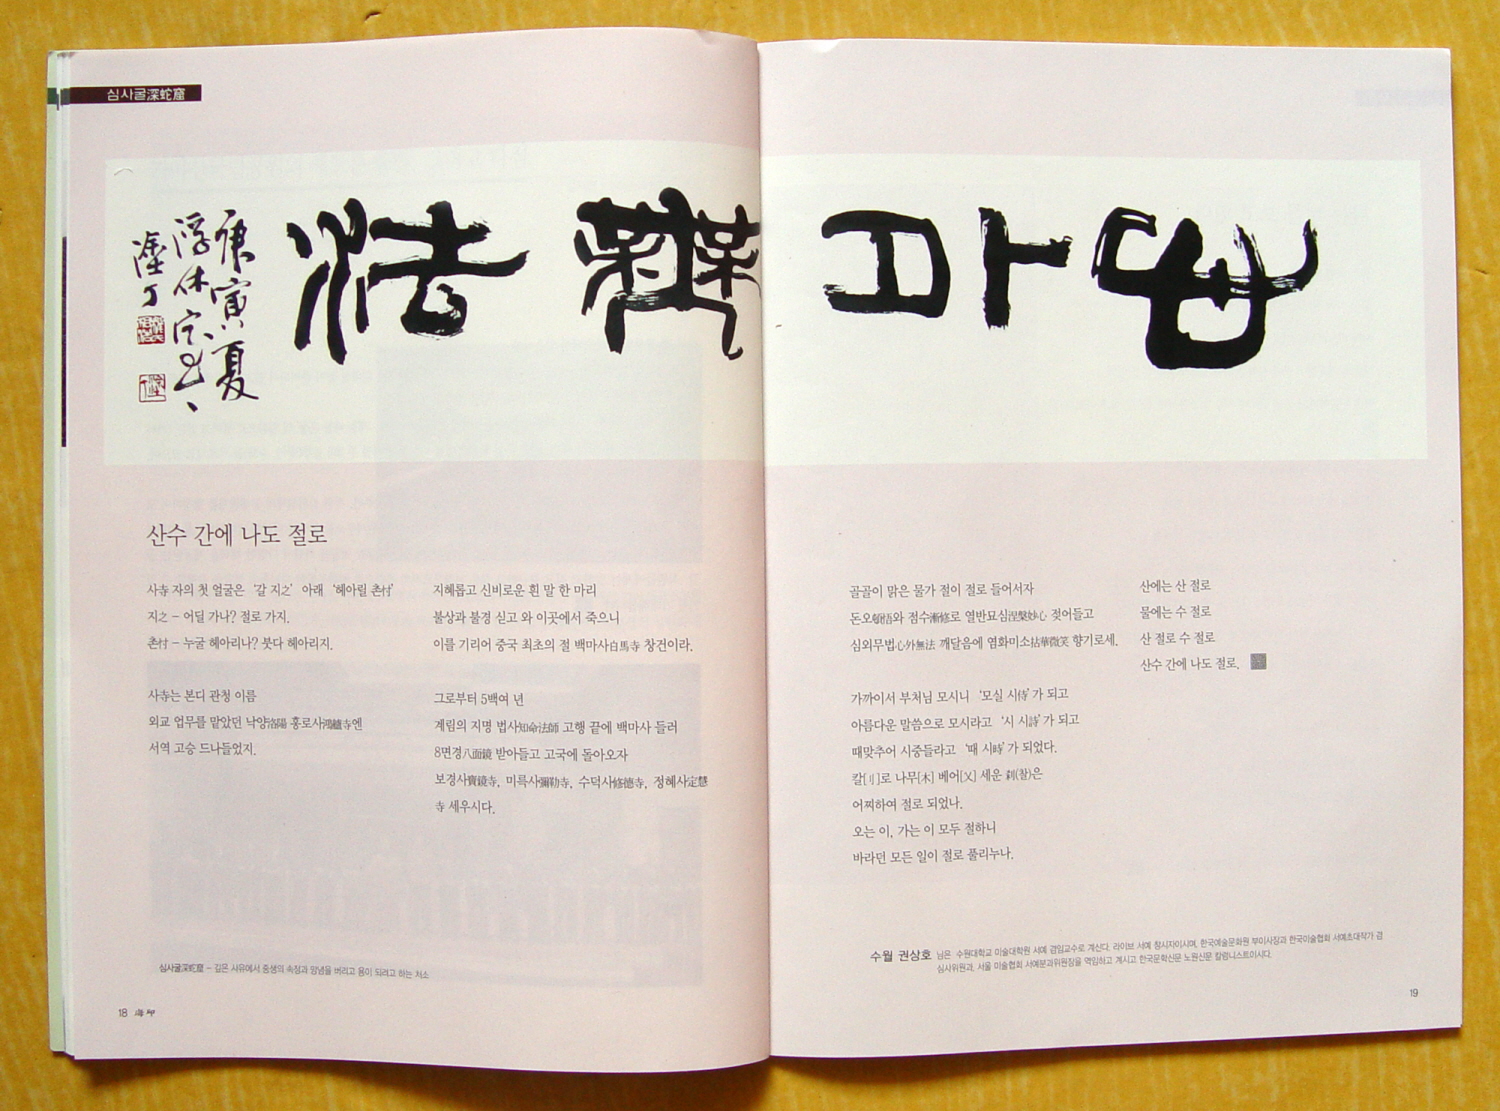 심사굴深蛇窟
心外無法
庚寅夏
浮休
산수 간에 나도 절로
사寺 자의 첫 얼굴은 ‘갈 지之’ 아래 ‘헤아릴 촌村’
지之 – 어딜 가나? 절로 가지.
촌村 – 누굴 헤아리나? 붓다 헤아리지.
사寺는 본디 관청 이름
외교 업무를 맡았던 낙양洛陽 홍로사鴻臚寺엔
서역 고승 드나들었지.
지혜롭고 신비로운 흰 말 한 마리
불상과 불경 싣고 와 이곳에서 죽으니
이를 기리어 중국 최초의 절 백마사白馬寺 창건이라.
그로부터 5백여 년
계림의 지명 법사知命法師 고행 끝에 백마사 들러
8면경八面鏡 받아들고 고국에 돌아오자
보경사寶鏡寺, 미륵사彌勒寺, 수덕사修德寺, 정혜사定慧
寺 세우시다.
심사굴深蛇窟 – 깊은 사유에서 중생의 속정과 망념을 버리고 용이 되려고 하는 처소
18 海印
골골이 맑은 물가 절이 절로 들어서자
돈오頓悟와 점수漸修로 열반묘심涅槃妙心 젖어들고
심외무법心外無法 깨달음에 염화미소拈華微笑 향기로세.
가까이서 부처님 모시니 ‘모실 시侍’가 되고
아름다운 말씀으로 모시라고 ‘시 시詩’가 되고
때맞추어 시중들라고 ‘때 시時’가 되었다.
칼[刂]로 나무[木] 베어[乂] 세운 刹(찰)은
어찌하여 절로 되었나.
오는 이, 가는 이 모두 절하니
바라던 모든 일이 절로 풀리누나.
산에는 산 절로
물에는 수 절로
산 절로 수 절로
산수 간에 나도 절로.
수월 권상호 님은 수원대학교 미술대학원 서예 겸임교수로 계신다. 라이브 서예 창시자이시며, 한국예술문화원 부이사장과 한국미술협회 서예초대작가 겸
심사위원과, 서울 미술협회 서예분과위원장을 역임하고 계시고 한국문학신문 노원신문 칼럼니스트이시다.
19